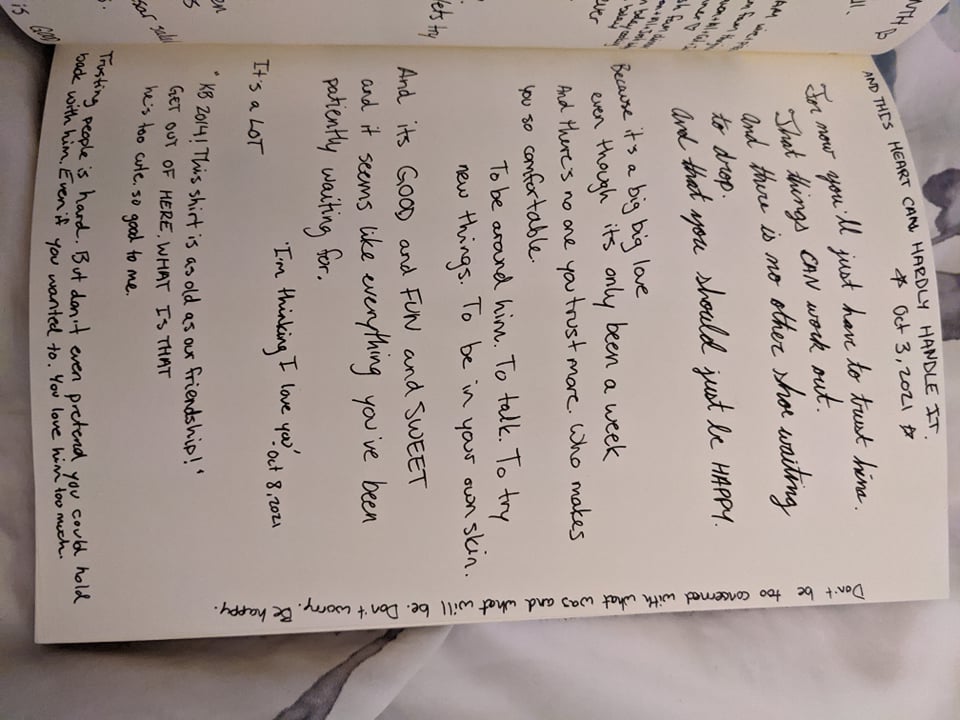 AND THIS HEART CAN HARDLY HANDLE IT.
☆ Oct 3, 2021 ☆
For now you'll just have to trust him.
That things CAN work out.
And there is no other shoe waiting
to drop.
And that you should just be HAPPY.
Because it's a big big love
even though its only been a week
And there's no one you trust more. Who makes
you so comfortable.
To be around him. To talk. To try
new things. To be in your own skin.
And its GOOD and FUN and SWEET
and it seems like everything you've been
patiently waiting for.
'I'm thinking I love you' - Oct 8, 2021
It's a LOT
"KB 2014! This shirt is as old as our friendship!"
GET OUT OF HERE. WHAT IS THAT
he's too cute. so good to me.
Trusting people is hard. But don't even pretend you could hold
back with him. Even if you wanted to. You love him too much.
Don't be too concerned with what was and what will be. Don't worry. Be happy.
lets try
is GOOD